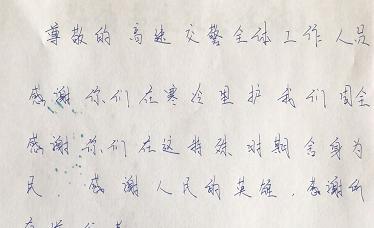 尊敬的高速交警全体工作人员
感谢你们在寒冷里护我们周全
感谢你们在这特殊时期舍身为
民，感谢人民的英雄，感谢所